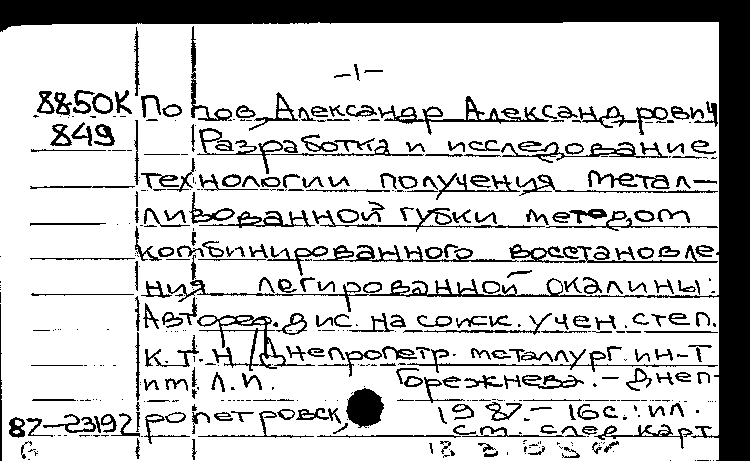 -1-
8850К Попов, Александр Александрович
849 Разработка и исследование
технологии получения метал-
лизованной губки методом
комбинированного восстановле-
ния легированной окалины:
Автореф. дис. на соиск. учен. степ.
к. т. н / Днепропетр. металлург. ин-т
им. Л. И. Брежнева. - Днеп-
87-23192 ропетровск, 1987. - 16 с. : ил.
см. след карт